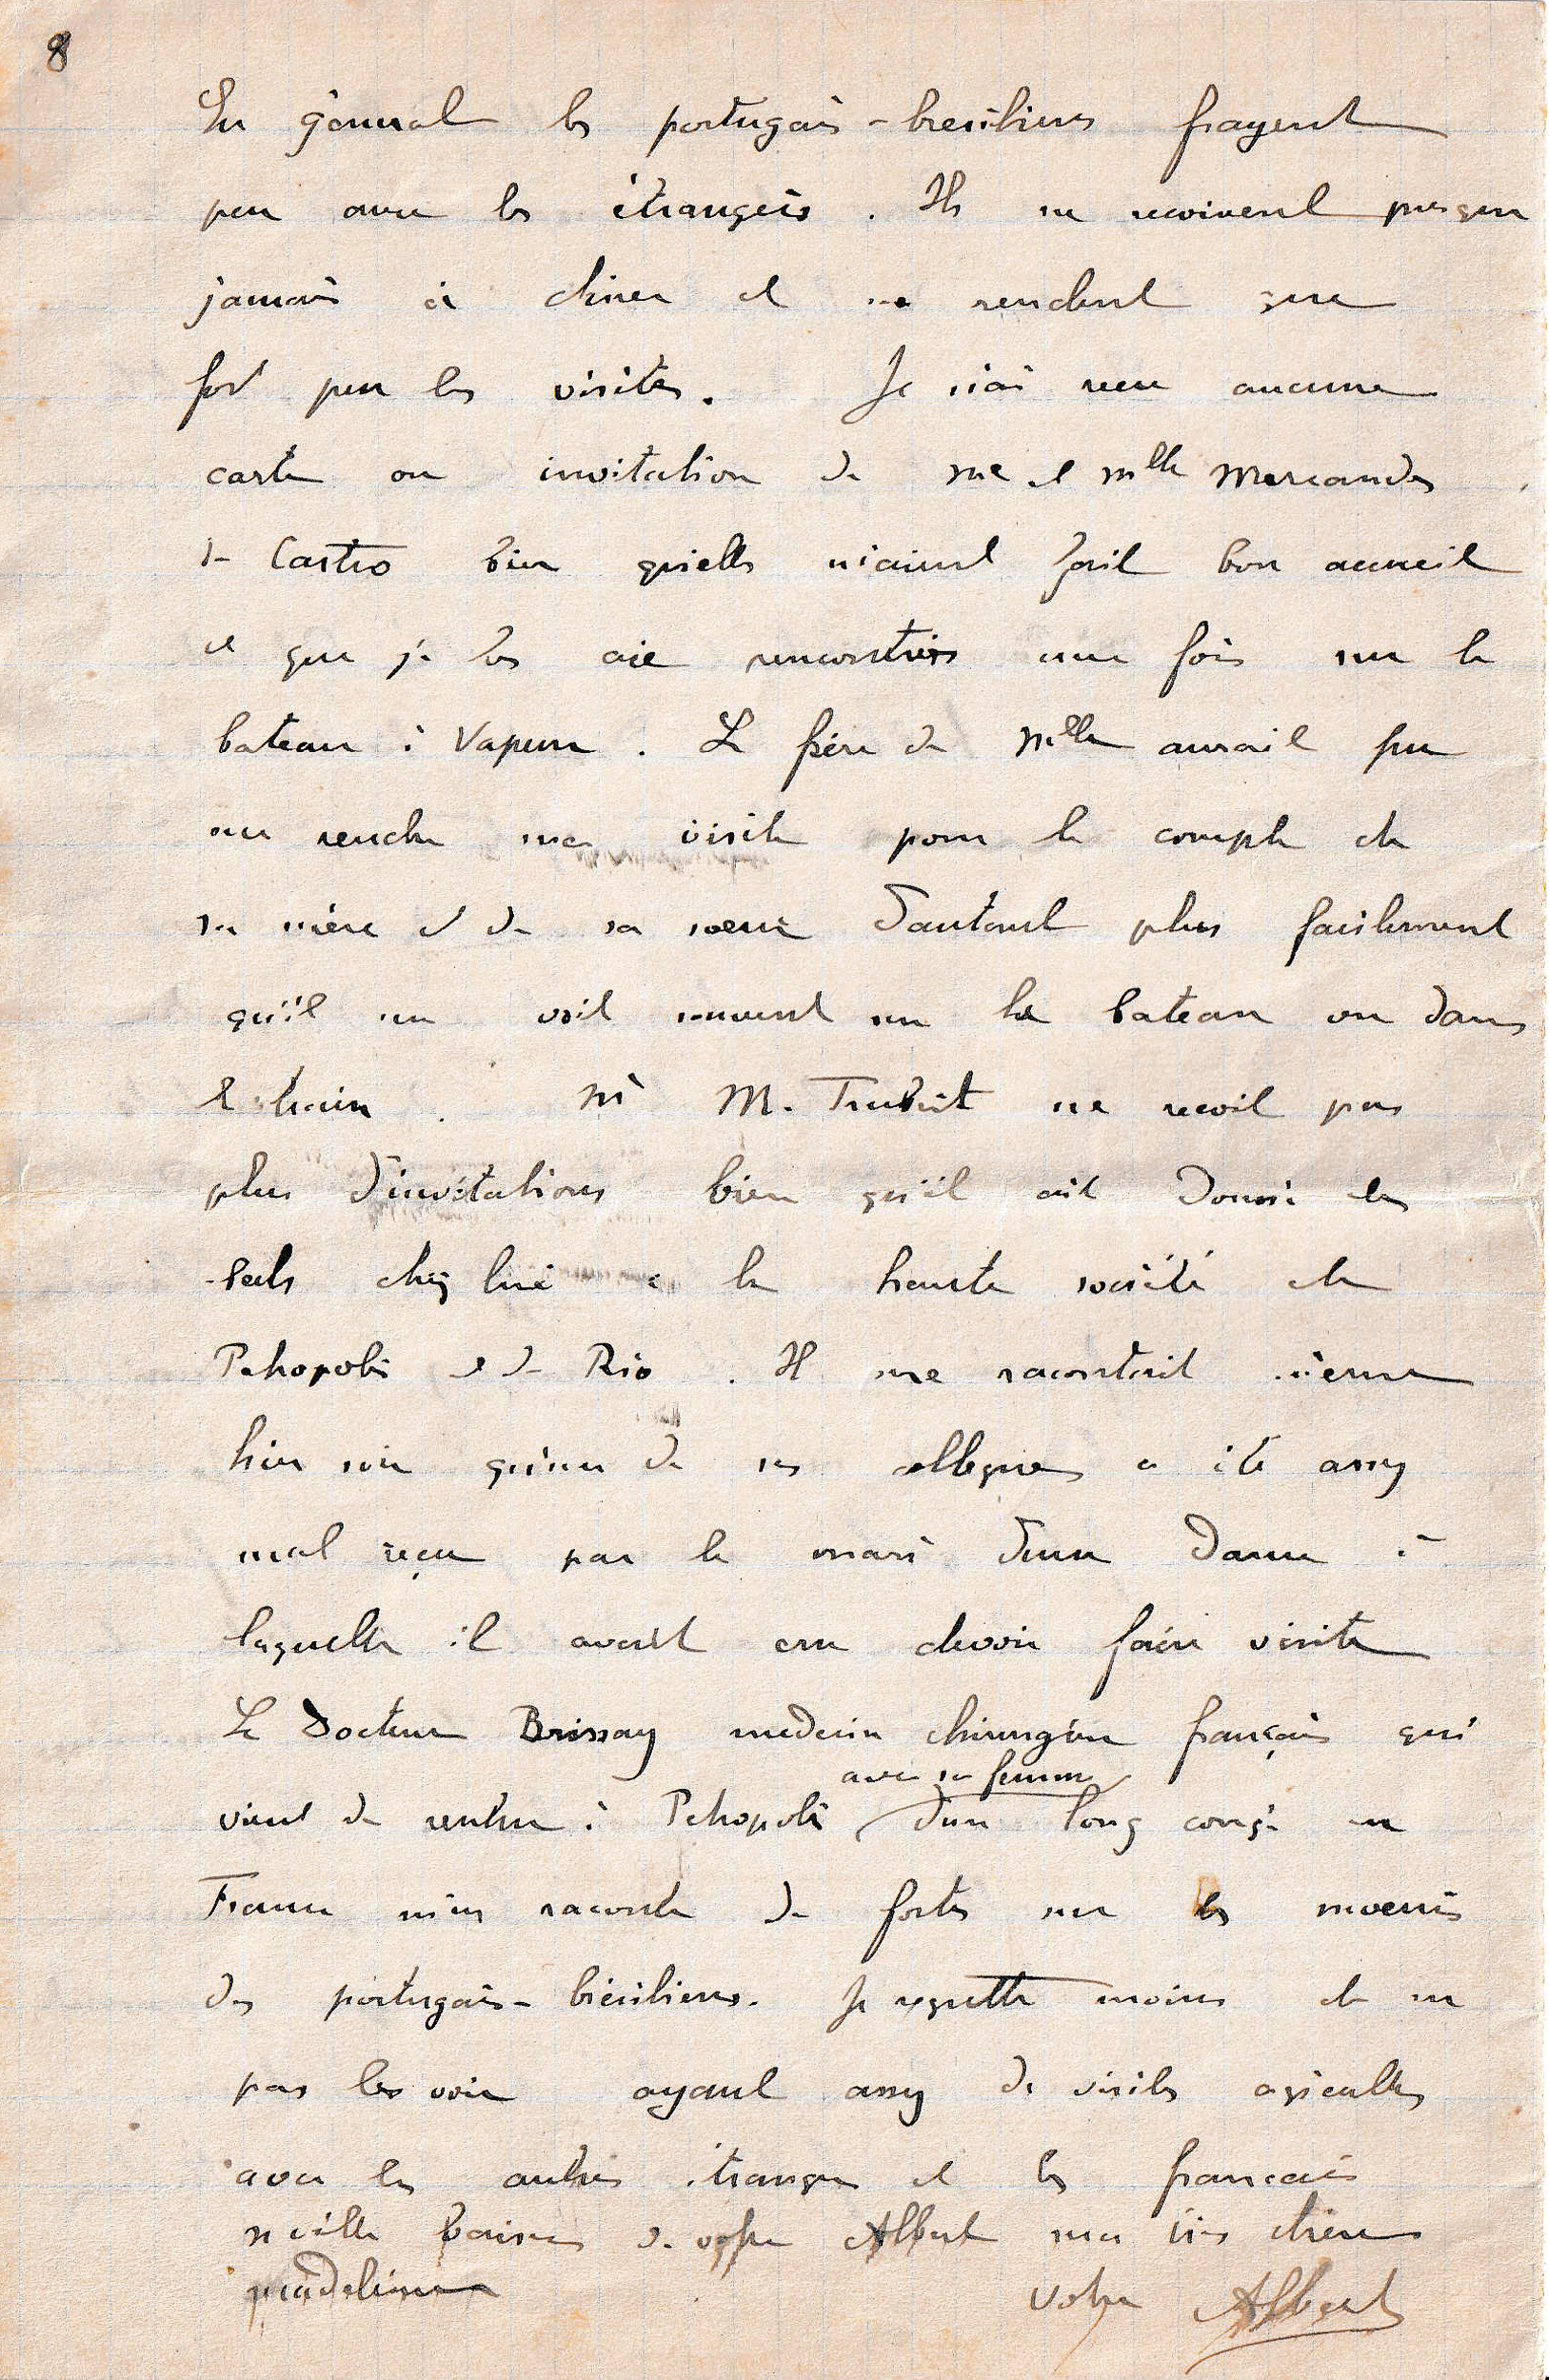 8
En général les portugais-bresiliens frayent
peu avec les étrangers. Ils ne recoivent presque
jamais à diner et ne rendent que
fort peu les visites. Je n'ai recu aucune
carte ou invitation de me et mlle
de Castro bien qu'elles m'aient fait bon accueil
et que je les aie rencontrées une fois sur le
bateau à Vapeur. Le frère de Mlle aurait pu
me rendre ma visite pour le compte de
sa mère et de sa soeur d'autant plus facilement
qu'il me voit souvent sur le bateau ou dans
le train. M. ne recoit pas
plus d'invitations bien qu'il ait donné des
bals chez lui à la haute société de
Petropolis et de Rio. Il me racontait même
hier soir qu'un de ses collegues a été assez
mal reçu par le mari d'une Dame à
laquelle il avait cru devoir faire visite
Le Docteur Brissay medecin chirurgien français qui
avec sa femme
vient de rentrer à Petropolis d'un long congé en
France m'en raconte de fortes sur les moeurs
des portugais-brésiliens. Je regrette moins de ne
pas les voir ayant assez de visites agréables
avec les autres étrangers et les francais
mille baisers de votre Albert ma très chère
madeleine votre Albert